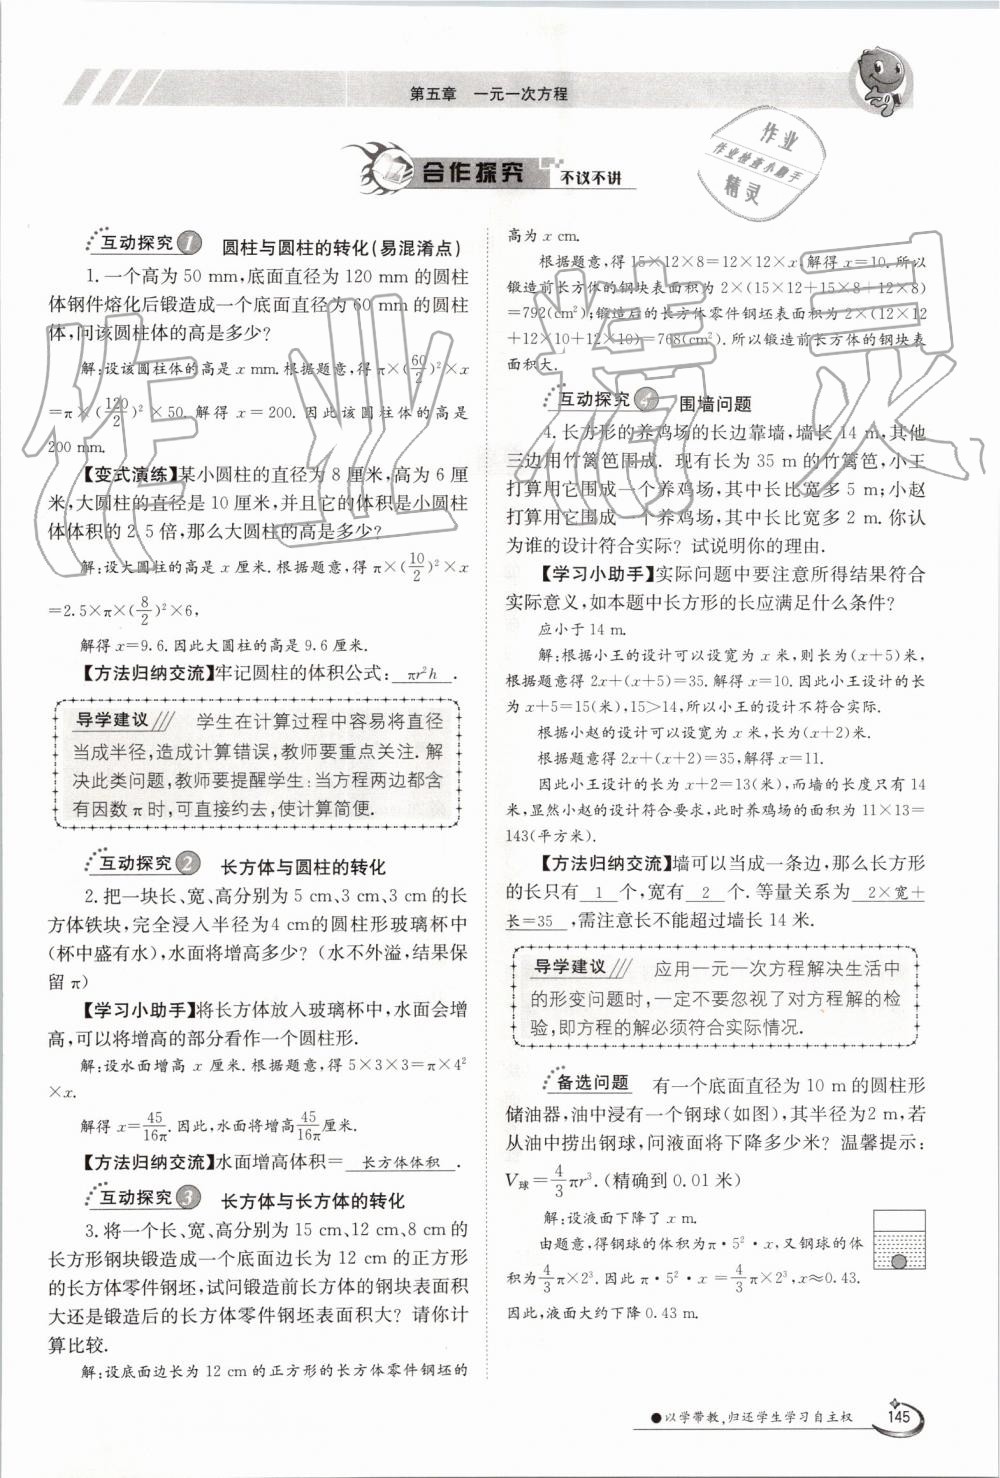 第五章 一元一次方程
合作探究 不议不讲
作业
作业检查小助手
精灵
互动探究1 圆柱与圆柱的转化(易混淆点)
1.一个高为50 mm,底面直径为120 mm的圆柱
体钢件熔化后锻造成一个底面直径为60 mm的圆柱
体,问该圆柱体的高是多少?
解:设该圆柱体的高是x mm.根据题意,得π×(60/2)²×x
=π×(120/2)²×50.解得x=200.因此该圆柱体的高是
200 mm.
【变式演练】某小圆柱的直径为8厘米,高为6厘
米,大圆柱的直径是10厘米,并且它的体积是小圆柱
体体积的2.5倍,那么大圆柱的高是多少?
解:设大圆柱的高是x厘米.根据题意,得π×(10/2)²×x
=2.5×π×(8/2)²×6,
解得x=9.6.因此大圆柱的高是9.6厘米.
【方法归纳交流】牢记圆柱的体积公式: πr²h .
导学建议 学生在计算过程中容易将直径
当成半径,造成计算错误,教师要重点关注.解
决此类问题,教师要提醒学生:当方程两边都含
有因数π时,可直接约去,使计算简便.
互动探究2 长方体与圆柱的转化
2.把一块长、宽、高分别为5 cm、3 cm、3 cm的长
方体铁块,完全浸入半径为4 cm的圆柱形玻璃杯中
(杯中盛有水),水面将增高多少?(水不外溢,结果保
留π)
【学习小助手】将长方体放入玻璃杯中,水面会增
高,可以将增高的部分看作一个圆柱形.
解:设水面增高x厘米.根据题意,得5×3×3=π×4²
×x.
解得x=45/16π.因此,水面将增高45/16π厘米.
【方法归纳交流】水面增高体积= 长方体体积 .
互动探究3 长方体与长方体的转化
3.将一个长、宽、高分别为15 cm、12 cm、8 cm的
长方形钢块锻造成一个底面边长为12 cm的正方形
的长方体零件钢坯,试问锻造前长方体的钢块表面积
大还是锻造后的长方体零件钢坯表面积大?请你计
算比较.
解:设底面边长为12 cm的正方形的长方体零件钢坯的
高为x cm.
根据题意,得15×12×8=12×12×x.解得x=10.所以
锻造前长方体的钢块表面积为2×(15×12+15×8+12×8)
=792(cm²);锻造后的长方体零件钢坯表面积为2×(12×12
+12×10+12×10)=768(cm²).所以锻造前长方体的钢块表
面积大.
互动探究4 围墙问题
4.长方形的养鸡场的长边靠墙,墙长14 m,其他
三边用竹篱笆围成.现有长为35 m的竹篱笆,小王
打算用它围成一个养鸡场,其中长比宽多5 m;小赵
打算用它围成一个养鸡场,其中长比宽多2 m.你认
为谁的设计符合实际?试说明你的理由.
【学习小助手】实际问题中要注意所得结果符合
实际意义,如本题中长方形的长应满足什么条件?
应小于14 m.
解:根据小王的设计可以设宽为x米,则长为(x+5)米,
根据题意得2x+(x+5)=35.解得x=10.因此小王设计的长
为x+5=15(米),15>14,所以小王的设计不符合实际.
根据小赵的设计可以设宽为x米,长为(x+2)米.
根据题意得2x+(x+2)=35,解得x=11.
因此小王设计的长为x+2=13(米),而墙的长度只有14
米,显然小赵的设计符合要求,此时养鸡场的面积为11×13=
143(平方米).
【方法归纳交流】墙可以当成一条边,那么长方形
的长只有 1 个,宽有 2 个.等量关系为 2×宽+
长=35 ,需注意长不能超过墙长14米.
导学建议 应用一元一次方程解决生活中
的形变问题时,一定不要忽视了对方程解的检
验,即方程的解必须符合实际情况.
备选问题 有一个底面直径为10 m的圆柱形
储油器,油中浸有一个钢球(如图),其半径为2 m,若
从油中捞出钢球,问液面将下降多少米?温馨提示:
V球=4/3πr³.(精确到0.01米)
解:设液面下降了x m.
由题意,得钢球的体积为π·5²·x,又钢球的体
积为4/3π×2³.因此π·5²·x=4/3π×2³,x≈0.43.
因此,液面大约下降0.43 m.
●以学带教,归还学生学习自主权 145
作业精灵